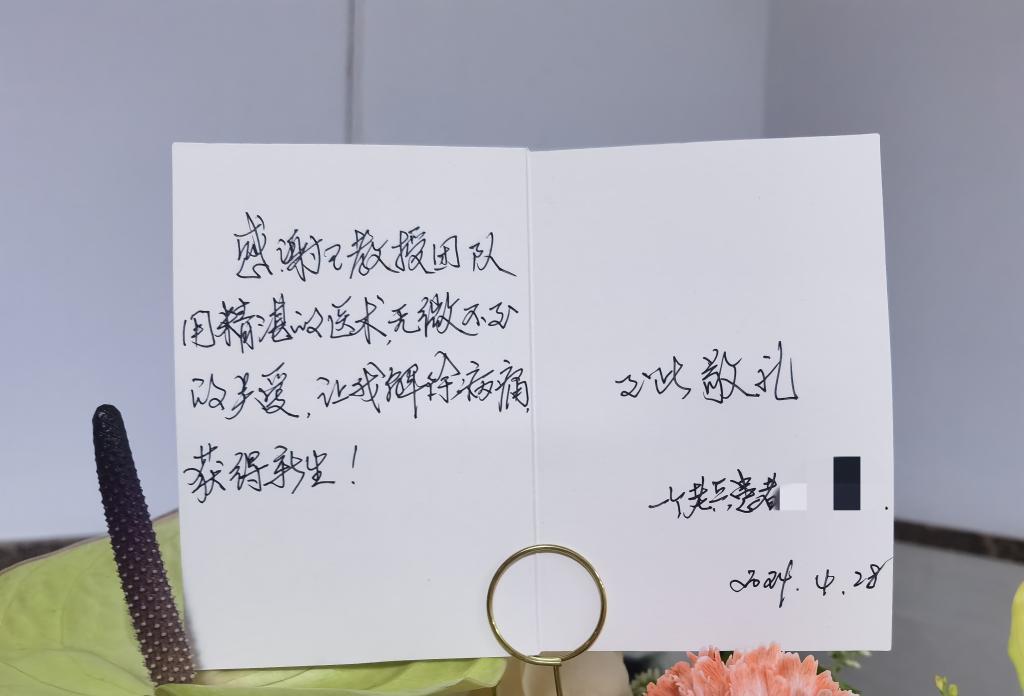 感谢王教授团队
用精湛的医术,无微不至
的关爱,让我解除病痛,
获得新生!
至此敬礼
一个老兵患者
2024.4.28